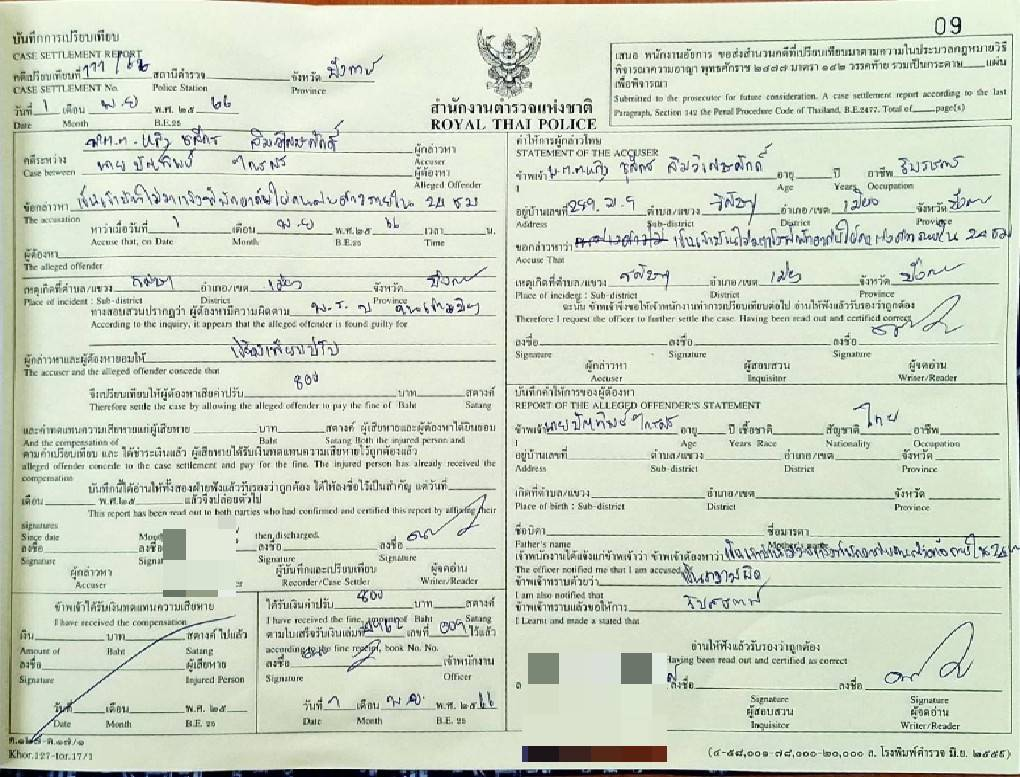 09
บันทึกการเปรียบเทียบ
CASE SETTLEMENT REPORT
คดีเปรียบเทียบที่ สถานีตำรวจ จังหวัด พังงา
CASE SETTLEMENT No. Police Station Province
วันที่ 1 เดือน พ.ย พ.ศ. ๒๕ 66
Date Month B.E.25
สำนักงานตำรวจแห่งชาติ
ROYAL THAI POLICE
เสนอ พนักงานอัยการ ขอส่งสำนวนคดีที่เปรียบเทียบมาตามความในประมวลกฎหมายวิธี
พิจารณาความอาญา พุทธศักราช ๒๔๗๗ มาตรา ๑๔๒ วรรคท้าย รวมเป็นกระดาษ แผ่น
เพื่อพิจารณา
Submitted to the prosecutor for future consideration. A case settlement report according to the last
Paragraph, Section 142 the Penal Procedure Code of Thailand, B.E.2477. Total of page(s)
ผู้กล่าวหา
คดีระหว่าง Accuser
Case between นาย ผู้ต้องหา
Alleged Offender
ข้อกล่าวหา 24 ชม
The accusation
หาว่าเมื่อวันที่ 1 เดือน พ.ย พ.ศ.๒๕ 66 เวลา น.
Accuse that, on Date Month B.E.25 Time
ผู้ต้องหา
The alleged offender
เหตุเกิดที่ตำบล/แขวง อำเภอ/เขต เมือง จังหวัด พังงา
Place of incident : Sub-district District Province
ทางสอบสวนปรากฏว่า ผู้ต้องหามีความผิดตาม พ.ร.บ คนเข้าเมือง
According to the inquiry, it appears that the alleged offender is found guilty for
ผู้กล่าวหาและผู้ต้องหายอมให้ เปรียบเทียบปรับ
The accuser and the alleged offender concede that
จึงเปรียบเทียบให้ผู้ต้องหาเสียค่าปรับ 800 บาท สตางค์
Therefore settle the case by allowing the alleged offender to pay the fine of Baht Satang
และค่าทดแทนความเสียหายแก่ผู้เสียหาย บาท สตางค์ ผู้เสียหายและผู้ต้องหาได้ยินยอม
And the compensation of Baht Satang Both the injured person and
ตามคำเปรียบเทียบ และ ได้ชำระเงินแล้ว ผู้เสียหายได้รับเงินทดแทนความเสียหายไว้ถูกต้องแล้ว
alleged offender concede to the case settlement and pay for the fine. The injured person has already received the
compensation
บันทึกนี้ได้อ่านให้ทั้งสองฝ่ายฟังแล้วรับรองว่าถูกต้อง ได้ให้ลงชื่อไว้เป็นสำคัญ แต่วันที่
เดือน พ.ศ.๒๕ แล้วจึงปล่อยตัวไป
This report has been read out to both parties who had confirmed and certified this report by affixing their
signatures
Since date then discharged.
ลงชื่อ ลงชื่อ ลงชื่อ
Signature Signature Signature
ผู้กล่าวหา ผู้บันทึกและเปรียบเทียบ ผู้จดอ่าน
Accuser Recorder/Case Settler Writer/Reader
ข้าพเจ้าได้รับเงินทดแทนความเสียหาย
I have received the compensation
เงิน บาท สตางค์ ไปแล้ว
Amount of Baht Satang
ลงชื่อ ผู้เสียหาย
Signature Injured Person
วันที่ เดือน พ.ศ.๒๕
Date Month B.E. 25
ได้รับเงินค่าปรับ 800 บาท สตางค์
I have received the fine, amount of Baht Satang
ตามใบเสร็จรับเงินเล่มที่ เลขที่ 009 ไว้แล้ว
according to the fine receipt, book No. No.
ลงชื่อ เจ้าพนักงาน
Signature Officer
วันที่ 1 เดือน พ.ย. พ.ศ. ๒๕ 66
Date Month B.E. 25
คำให้การผู้กล่าวโทษ
STATEMENT OF THE ACCUSER
ข้าพเจ้า อายุ ปี อาชีพ รับราชการ
I Age Years Occupation
อยู่บ้านเลขที่ ตำบล/แขวง อำเภอ/เขต เมือง จังหวัด พังงา
Address Sub-district District Province
ขอกล่าวหาว่า 24 ชม
Accuse That
เหตุเกิดที่ตำบล/แขวง อำเภอ/เขต เมือง จังหวัด พังงา
Place of incident : Sub-district District Province
ฉะนั้น ข้าพเจ้าจึงขอให้เจ้าพนักงานทำการเปรียบเทียบต่อไป อ่านให้ฟังแล้วรับรองว่าถูกต้อง
Therefore I request the officer to further settle the case. Having been read out and certified correct
ลงชื่อ ลงชื่อ ลงชื่อ
Signature Signature Signature
ผู้กล่าวหา ผู้สอบสวน ผู้จดอ่าน
Accuser Inquisitor Writer/Reader
บันทึกคำให้การของผู้ต้องหา
REPORT OF THE ALLEGED OFFENDER'S STATEMENT
ข้าพเจ้า นาย อายุ ปี เชื้อชาติ สัญชาติ ไทย อาชีพ
I Age Years Race Nationality Occupation
อยู่บ้านเลขที่ ตำบล/แขวง อำเภอ/เขต จังหวัด
Address Sub-district District Province
เกิดที่ตำบล/แขวง อำเภอ/เขต จังหวัด
Place of birth : Sub-district District Province
ชื่อบิดา ชื่อมารดา
Father's name Mother's name
เจ้าพนักงานได้แจ้งแก่ข้าพเจ้าว่า ข้าพเจ้าต้องหาว่า
The officer notified me that I am accused
ข้าพเจ้าทราบด้วยว่า เป็นความผิด
I am also notified that
ข้าพเจ้าทราบแล้วขอให้การ รับสารภาพ
I Learnt and made a stated that
อ่านให้ฟังแล้วรับรองว่าถูกต้อง
Having been read out and certified as correct
ลงชื่อ ลงชื่อ
Signature Signature
ผู้สอบสวน ผู้จดอ่าน
Inquisitor Writer/Reader
ค.๑๒๗-ต.๑๗/๑
Khor.127-tor.17/1
(๔-๕๘,๐๐๑-๗๘,๐๐๐-๒๐,๐๐๐ ล. โรงพิมพ์ตำรวจ มิ.ย. ๒๕๕๕)